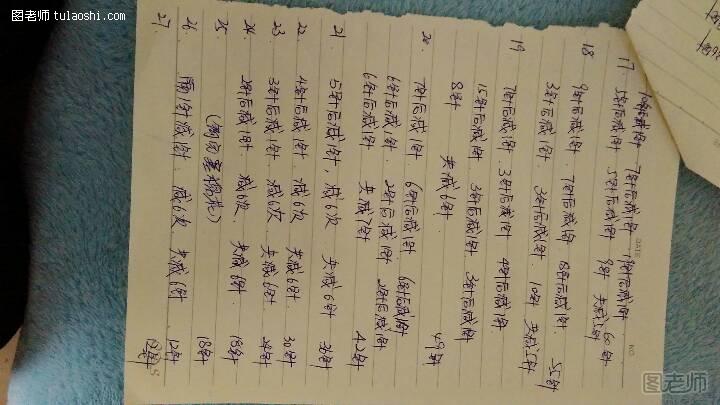 图老师 tulaoshi.com
17. 1针后减1针 7针后减1针 1针后减1针
5针后减1针 5针后减1针 9针 共减5针 60针
18 9针后减1针 7针后减1针 8针后减1针
3针后减1针 3针后减1针 10针 共减5针 55针
19 7针后减1针 3针后减1针 4针后减1针
15针后减1针 3针后减1针 3针后减1针
8针 共减6针 49针
20 7针后减1针 6针后减1针 6针后减1针
6针后减1针 2针后减1针 2针后减1针
6针后减1针 共减7针 42针
21 5针后减1针, 减6次 共减6针 36针
22 4针后减1针 减6次 共减6针 30针
23 3针后减1针 减6次 共减6针 24针
24 2针后减1针 减6次 共减6针 18针
25 18针
26 隔1针减1针 减6次 共减6针 12针
27
图老师